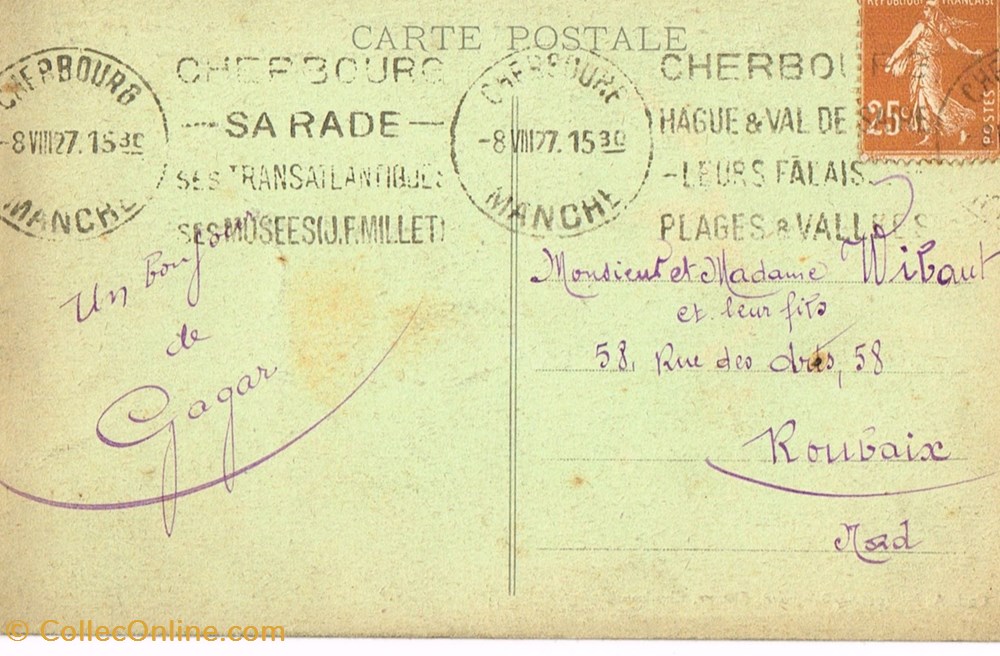 CARTE POSTALE
CHERBOURG
-8 VIII 27. 15 30
MANCHE
CHERBOURG
— SA RADE —
SES TRANSATLANTIQUES
SES MUSEES (J.F. MILLET)
CHERBOURG
-8 VIII 27. 15 30
MANCHE
CHERBOURG
HAGUE & VAL DE SAIRE
— LEURS FALAIS
PLAGES & VALLEES
REPUBLIQUE FRANÇAISE
25c
POSTES
CH
Un bonjour
de
Gagar
Monsieur et Madame Wibaut
et leur fils
58, Rue des
58
Roubaix
Nord
© CollecOnline.com